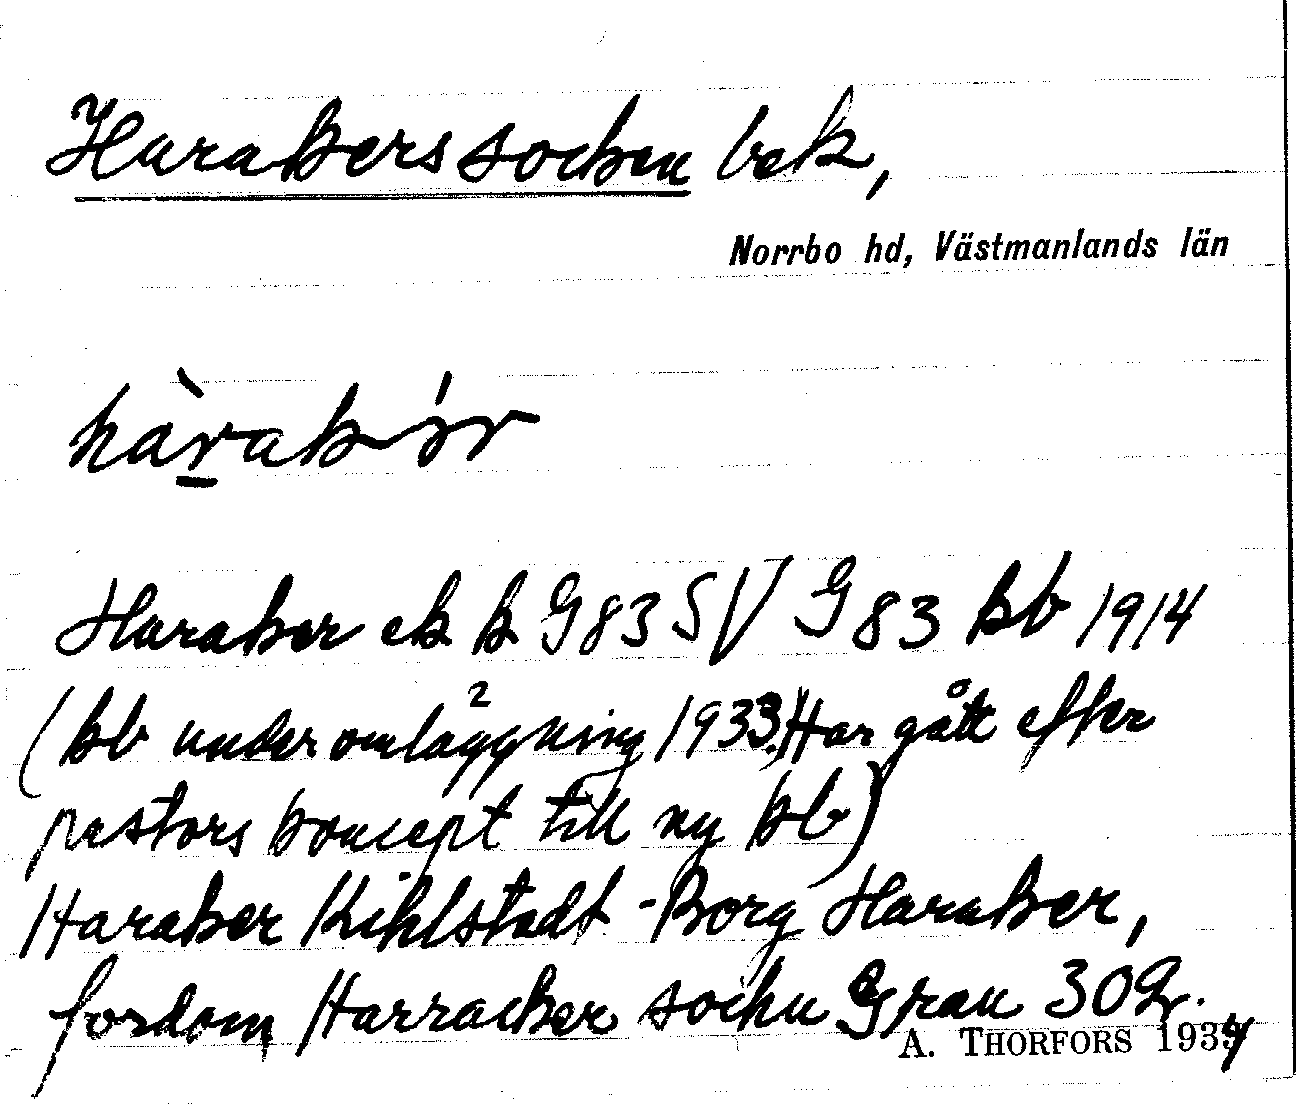 Harakers socken bek,
Norrbo hd, Västmanlands län
hàrakər
Haraker ek k G 83 SV G 83 kb 1914
(kb under omläggning 1933. Har gått efter
pastors koncept till ny kb)
Haraker Kihlstedt-Borg Haraker,
fordom Harracker sochn Grau 302.
A. THORFORS 1934